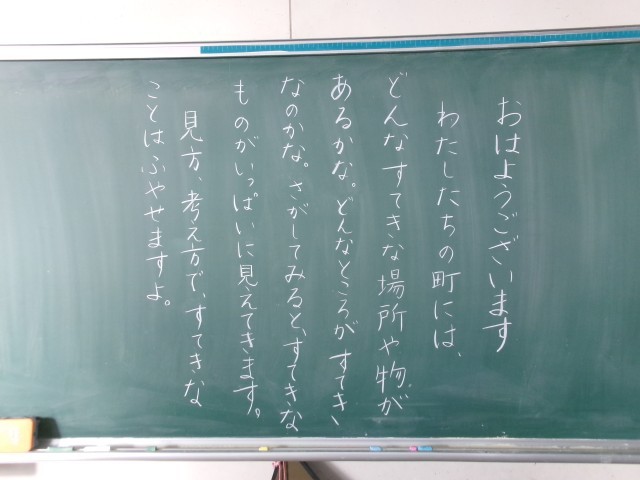 おはようございます
わたしたちの町には、
どんなすてきな場所や物が
あるかな。どんなところがすてき、
なのかな。さがしてみると、すてきな
ものがいっぱいに見えてきます。
見方、考え方で、すてきな
ことはふやせますよ。